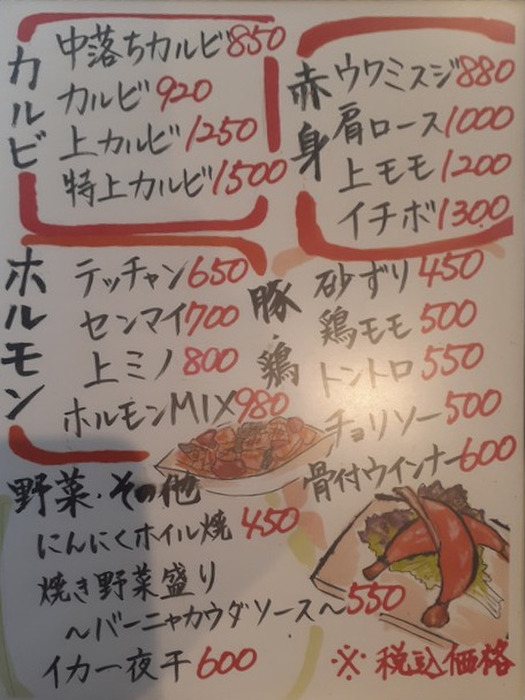 カルビ
中落ちカルビ850
カルビ920
上カルビ1250
特上カルビ1500
赤身
ウワミスジ880
肩ロース1000
上モモ1200
イチボ1300
ホルモン
テッチャン650
センマイ700
上ミノ800
ホルモンMIX980
豚・鶏
砂ずり450
鶏モモ500
トントロ550
チョリソー500
骨付ウインナー600
野菜・その他
にんにくホイル焼450
焼き野菜盛り
〜バーニャカウダソース〜550
イカ一夜干600
※税込価格